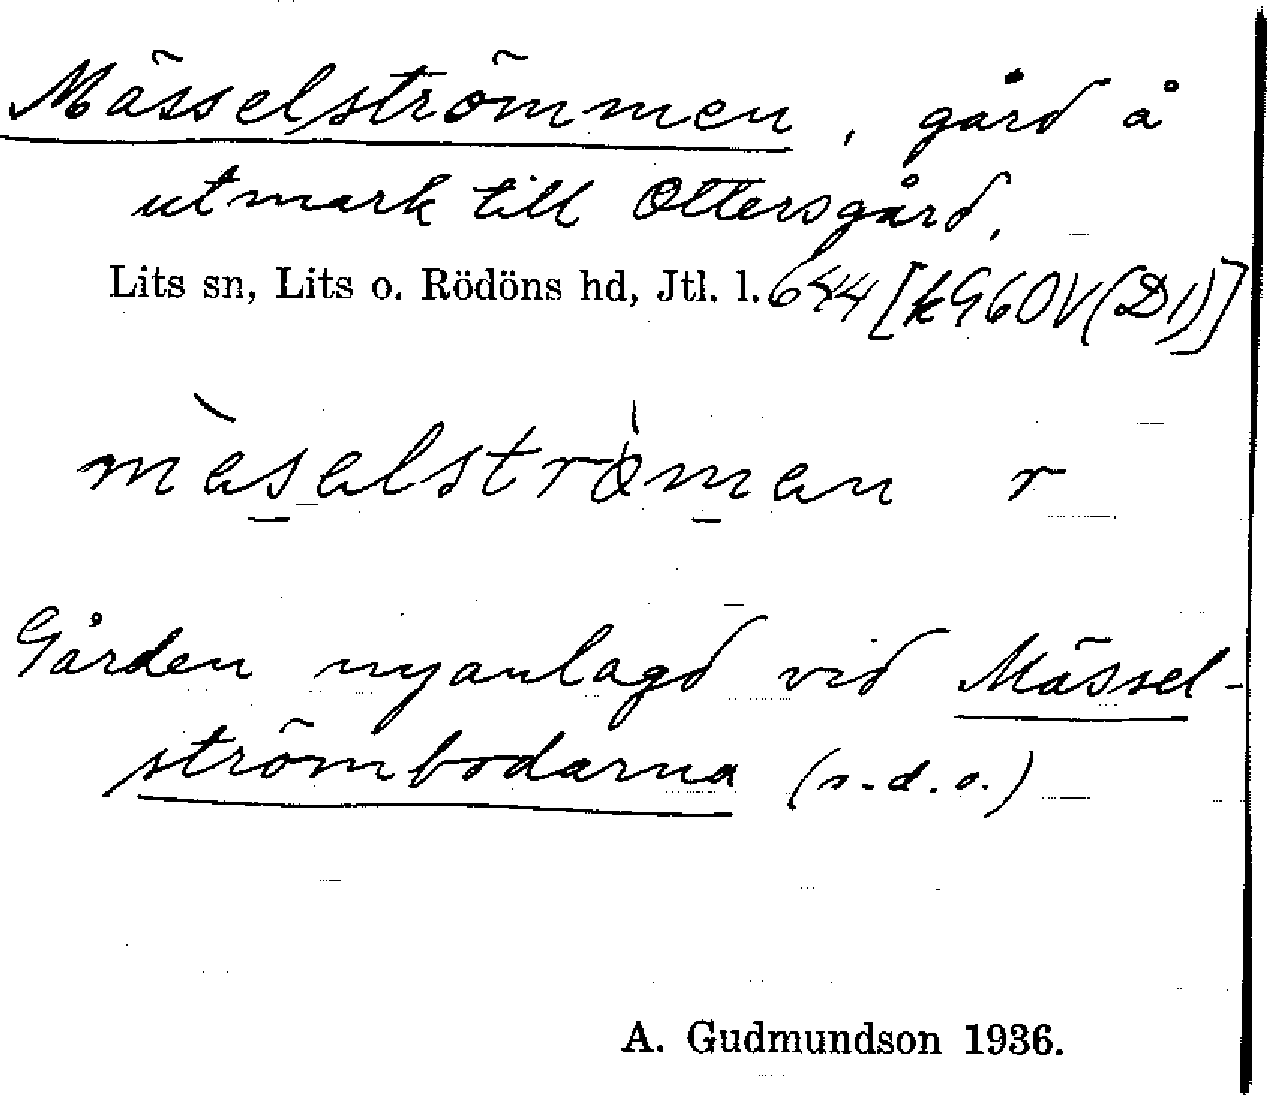 Mässelströmmen, gård å
utmark till Ottersgård.
Lits sn, Lits o. Rödöns hd, Jtl. l. 644 [kG60V(D1)]
mèsalströ̀man r
Gården nyanlagd vid Mässel-
strömbodarna (s.d.o.)
A. Gudmundson 1936.